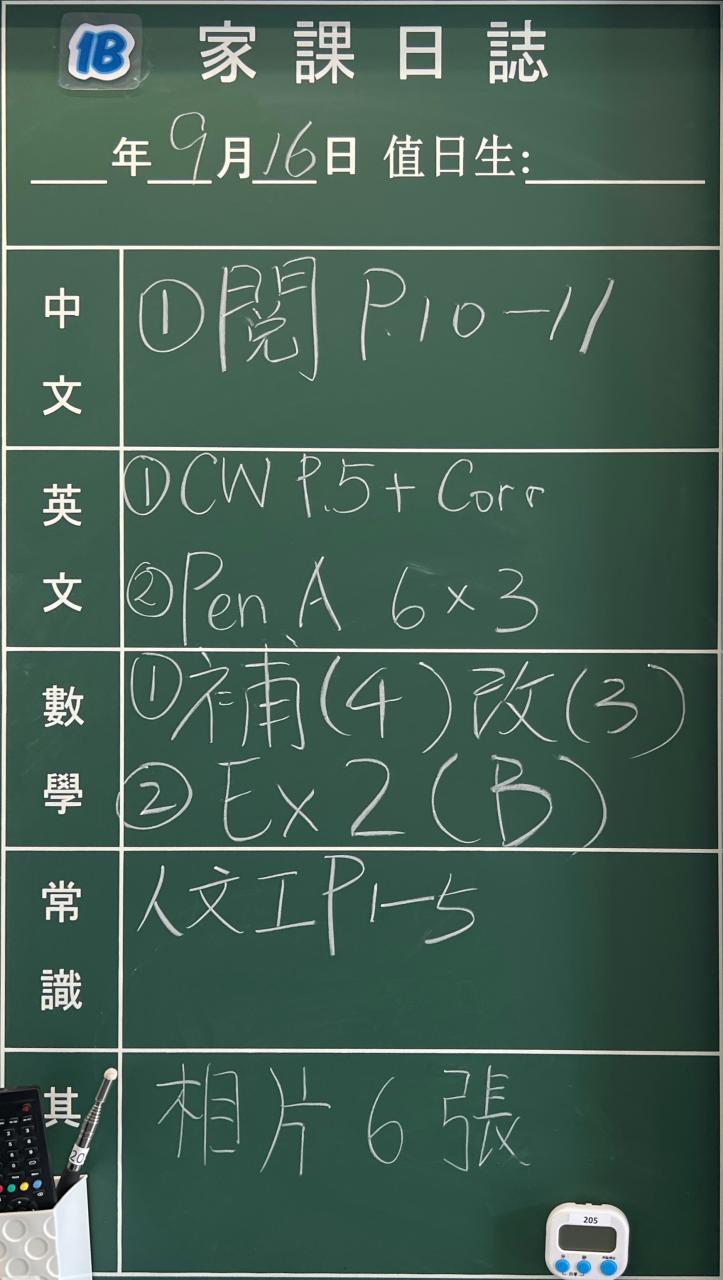 1B 家課日誌
年9月16日 值日生:
中文
①閱 P.10-11
英文
①CW P.5+ Corr
②Pen A 6×3
數學
①補(4)改(3)
②Ex 2(B)
常識
人文工P1-5
其
相片6張
20
205